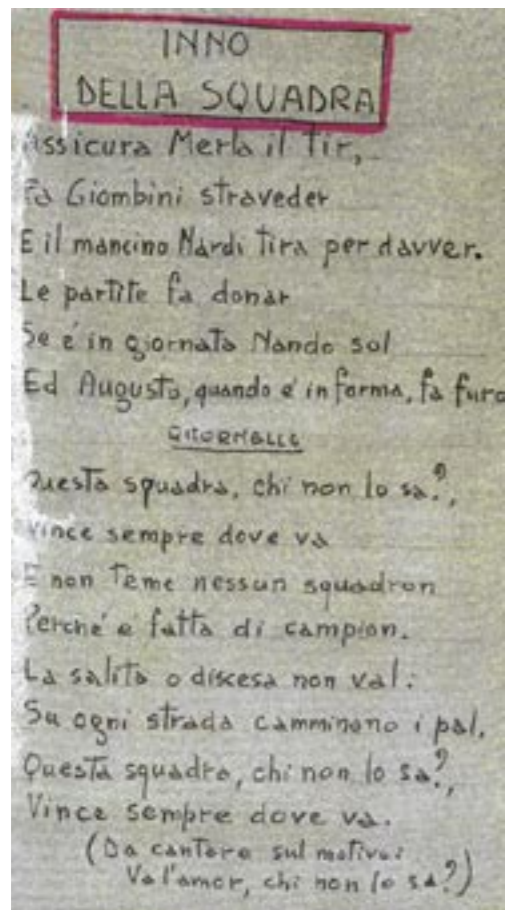 INNO
DELLA SQUADRA
Assicura Merla il tir,
Fa Giombini straveder
E il mancino Nardi tira per davver.
Le partite fa donar
Se é in giornata Nando sol
Ed Augusto, quando é in forma, fa furor
RITORNELLO
Questa squadra, chi non lo sa?,
Vince sempre dove va
E non teme nessun squadron
Perché é fatta di campion.
La salita o discesa non val:
Su ogni strada camminano i pal.
Questa squadra, chi non lo sa?,
Vince sempre dove va.
(Da cantare sul motivo:
Va l'amor, chi non lo sa?)